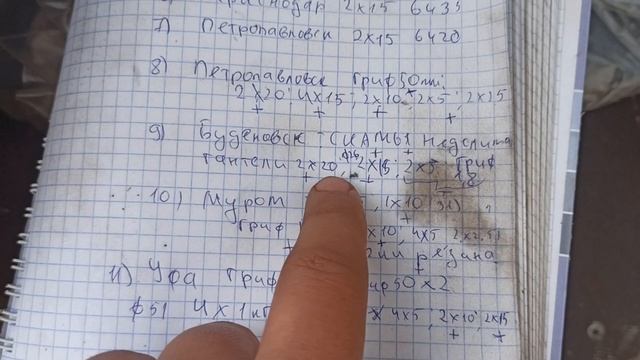 Краснодар 2x15 6435
7) Петропавловск 2x15 6420
8) Петропавловск Гриф 50мм;
2x20; 4x15; 2x10; 2x5; 2x25
+ + + + +
9) Буденовск СКАМЬЯ Неделима
гантели 2x20, 2x15; 2x5 Гриф
+ + 1,8
10) Муром , 1x10
гриф x10; 4x5 2x2,5)
резина
11) Уфа гриф 50x2
ф51 4x1кг 4x5; 2x10; 2x15
+ +